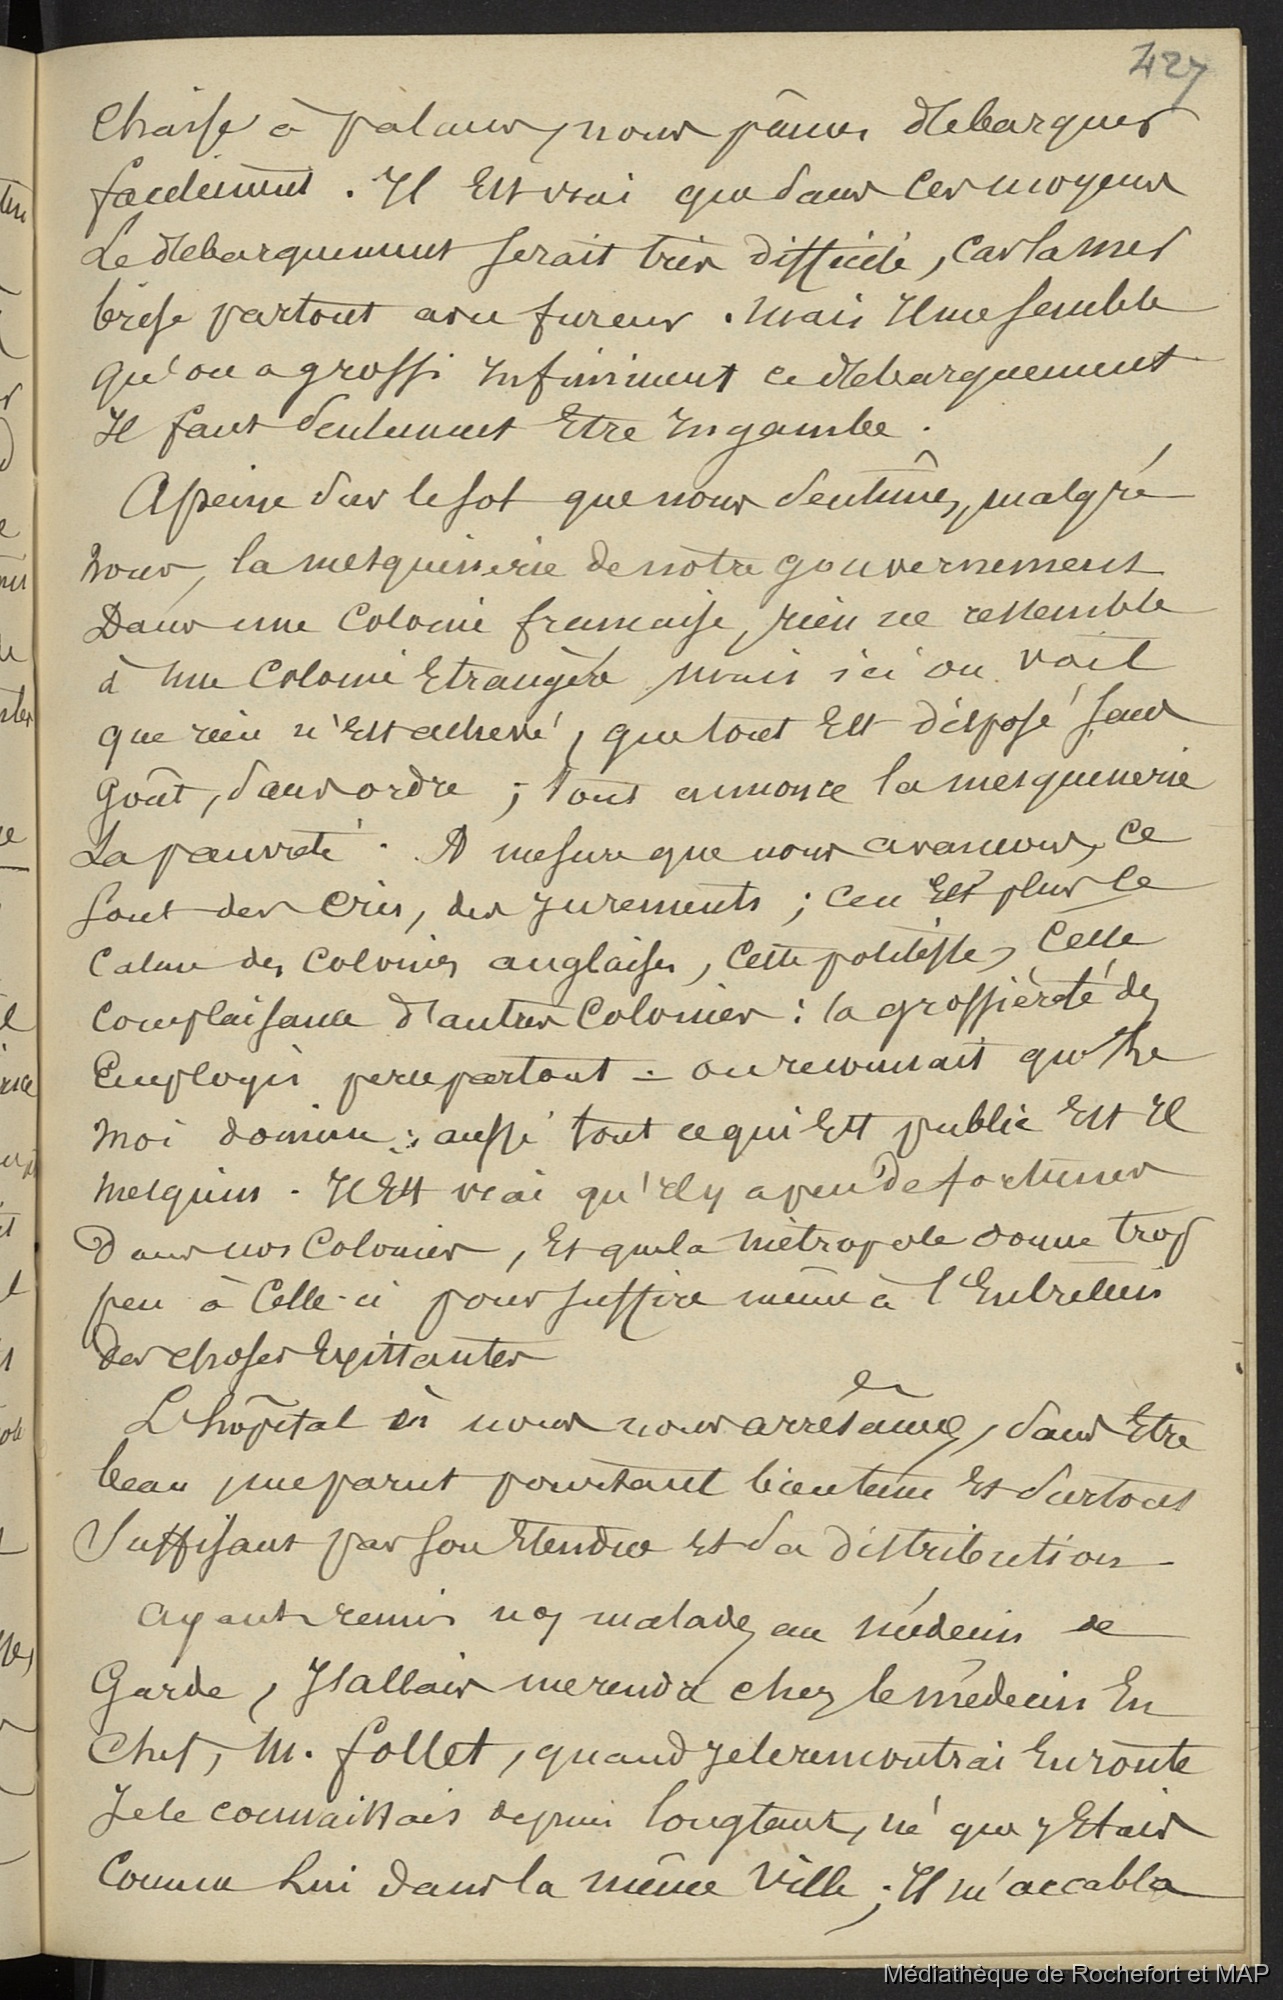 427
Chaise à palans, nous pûmes débarquer
facilement. Il Est vrai que sans ces moyens
Le debarquement serait très difficile, car la mer
brise partout avec fureur. Mais Il me semble
qu'on a grossi infiniment ce debarquement
Il faut seulement Etre Ingambe.
A peine sur le sol que nous sentîmes, malgré
nous, la mesquinerie de notre gouvernement
Dans une Colonie francaise, rien ne ressemble
à une Colonie Etrangère, mais ici on voit
que rien n'Est achevé, que tout Est disposé sans
goût, sans ordre ; tout annonce la mesquinerie
La pauvreté. A mesure que nous avancons, ce
sont des cris, des jurements ; ce n'Est plus le
calme des Colonies anglaises, cette politesse, Cette
complaisance d'autres Colonies : la grossièreté des
Employés perce partout - on reconnait que le
moi domine ; aussi tout ce qui Est public Est Il
mesquin. Il Est vrai qu'Il y a peu de fortunes
Dans nos Colonies, Et que la Métropole donne trop
peu à Celle-ci pour suffire même à l'Entretien
des choses Existantes
L'hôpital où nous nous arrêtames, sans Etre
beau, me parut pourtant bien tenu Et surtout
Suffisant par son Etendue Et sa distribution
Ayant remis nos malades au médecin de
Garde, J'allais me rendre chez le médecin En
Chef, M. follet, quand Je le rencontrai En route
Je le connaissais depuis longtems, né que j'Etais
Comme Lui dans la même Ville ; Il m'accabla
Médiathèque de Rochefort et MAP